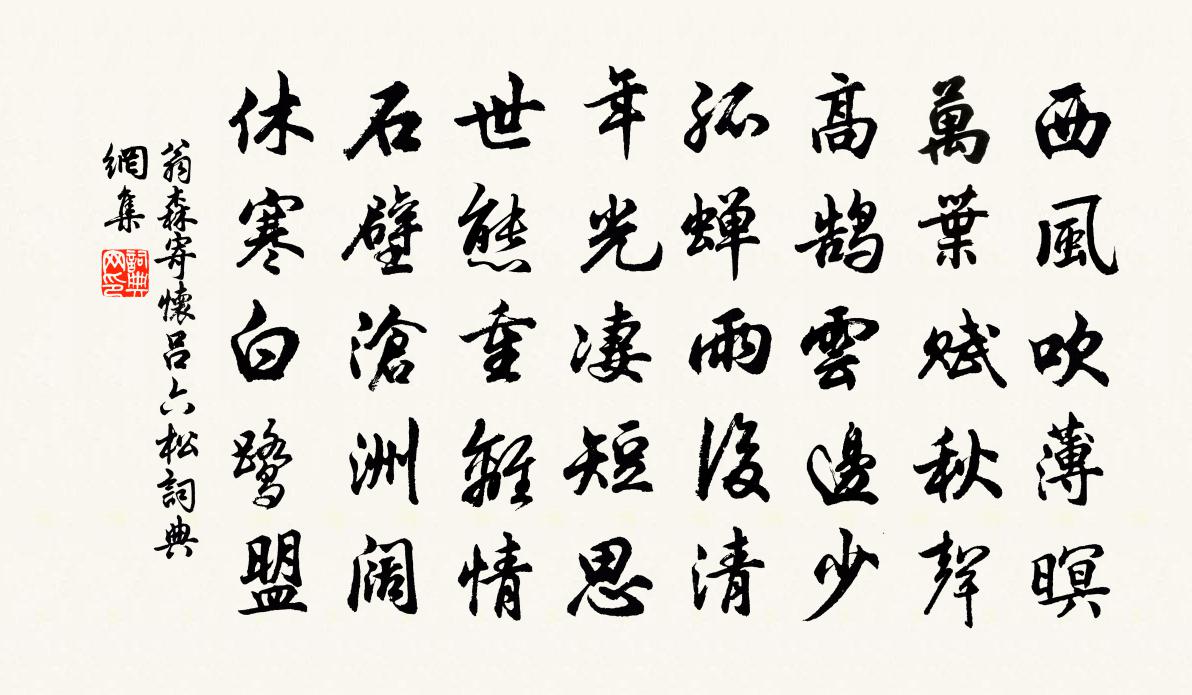 西風吹薄暝
萬葉賦秋聲
高鵠雲邊少
孤蝉雨後清
年光凄短思
世態重離情
石壁滄洲阔
休寒白鷺盟
翁森寄懷呂六松詞典
網集
詞典网印